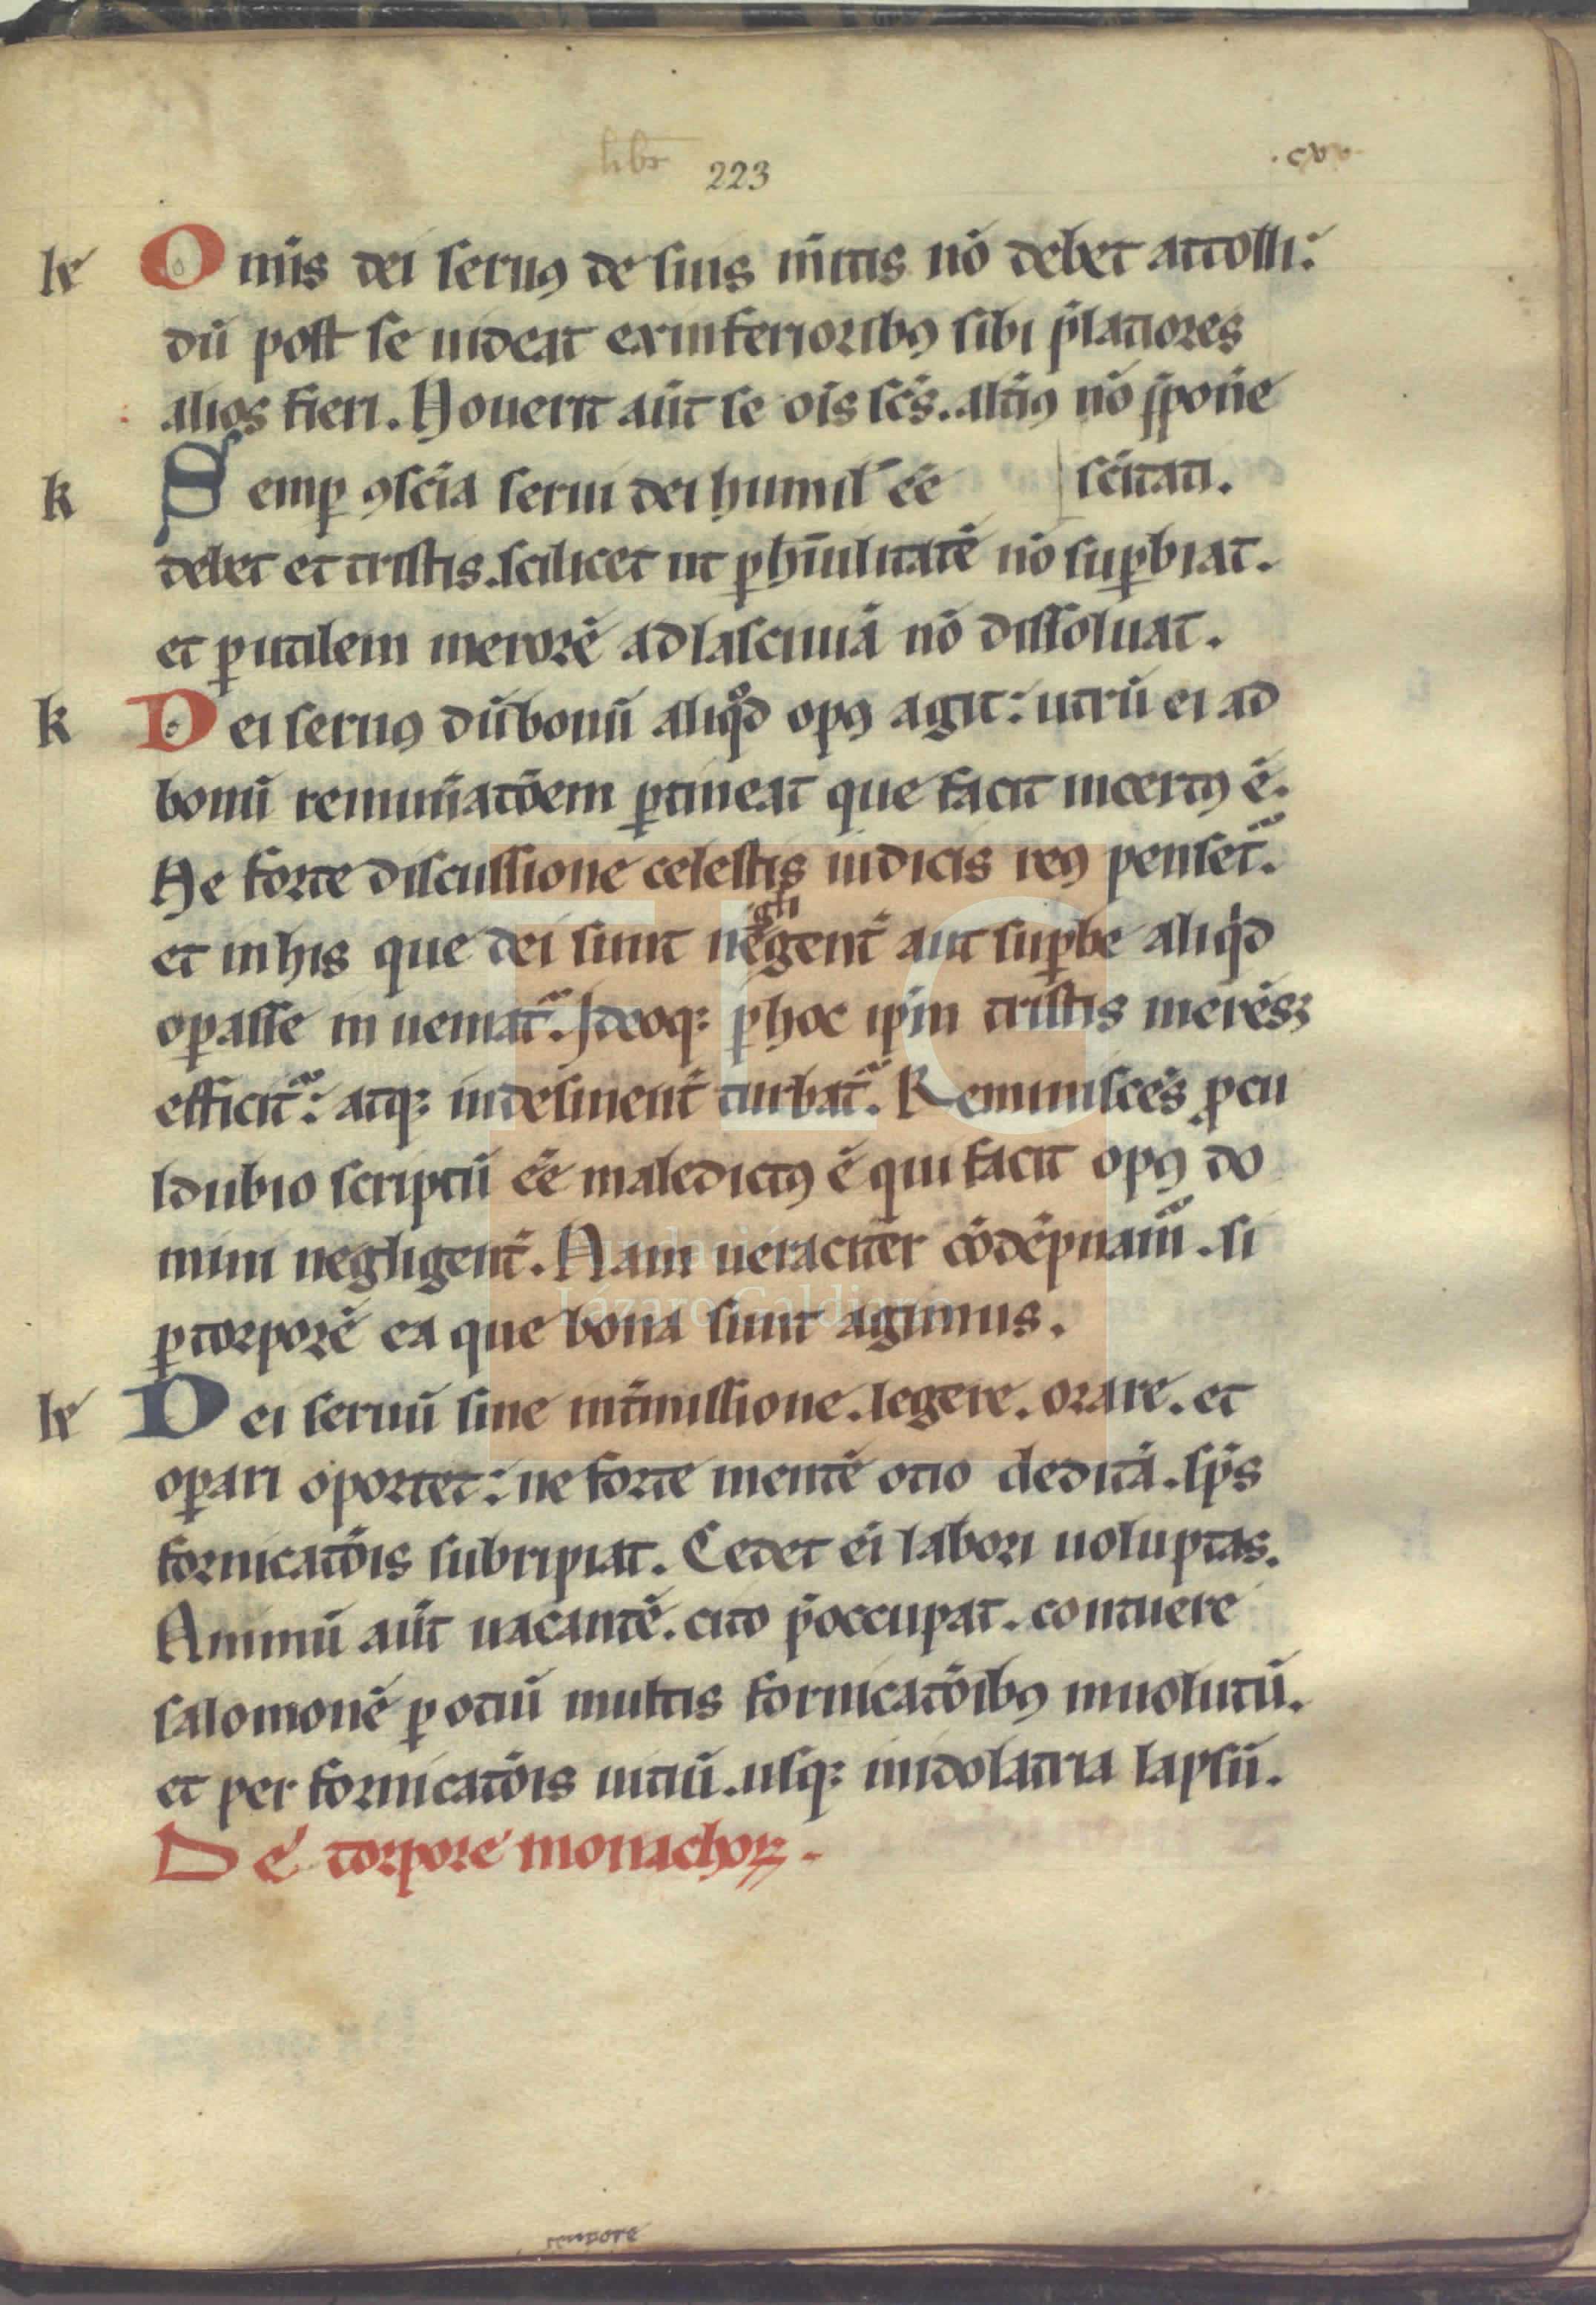 libr 223
le Om̄is dei seruꝰ de suis m̄itis nō debet attolli:
dū post se uideat exinferioribꝰ sibi p̄latiores
alios fieri. Nouerit aūt se oīs sc̄s. alt̄iꝰ nō p̄pone
k Semꝑ ꝯsc̄ia serui dei humil̄ eē sc̄itati.
debet et tristis. scilicet ut ꝑhūilitatē nō suꝑbiat.
et ꝑutilem merorē adlasciuiā nō dissoluat.
k Dei seruꝰ dūbonū aliqͦd opꝰ agit: utrū ei ad
bonū remun̄atōem ꝑtineat que facit incertꝰ ē.
Ne forte discussione celestis iudicis reꝰ penset᷑.
et inhis que dei sunt neḡgli gent̄ aut suꝑbe aliqͥd
oꝑasse in ueniat᷑. Ideoqꝫ ꝑhoc ip̄m tristis merēsꝫ
efficit᷑: atqꝫ indesinent̄ turbat᷑. Reminiscēs ꝓcu
ldubio scriptū eē maledictꝰ ē qui facit opꝰ do
mini negligent̄. Nam ueraciter cōdēpnam᷑. si
ꝑtorporē ea que bona sunt agimus.
le Dei seruū sine int̄missione. legere. orare. et
oꝑari oportet: ne forte mentē otio deditā. sp̄s
fornicatōis subripiat. Cedet eī labori uoluptas.
Animū aūt uacantē. cito p̄occupat. contuere
salomonē ꝑotiū multis fornicatōibꝰ inuolutū.
et per fornicatōis uitiū. usqꝫ inidolatria lapsū.
De torpore monachoꝝ.
Fundación
Lázaro Galdiano
tempore